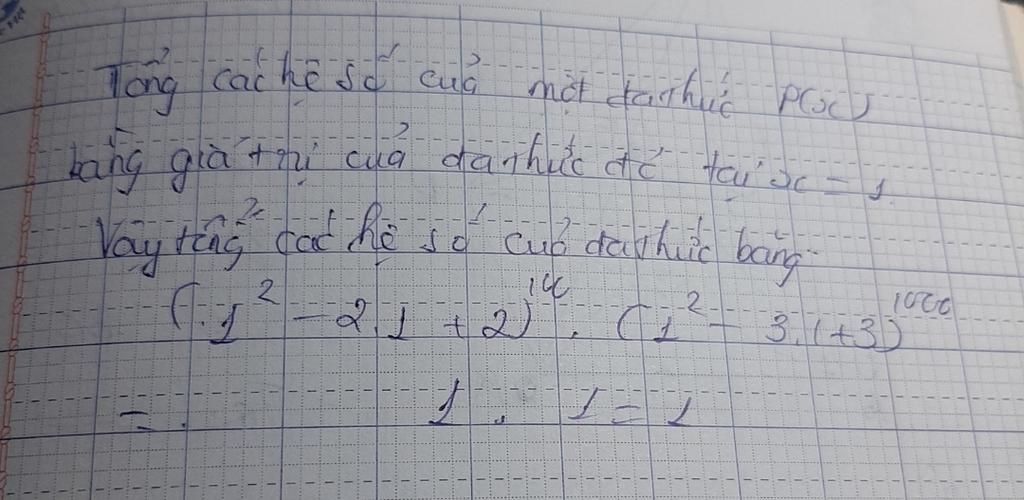 Tổng các hệ số của một đa thức P(x)
bằng giá trị của đa thức đó tại x = 1.
Vậy tổng các hệ số của đa thức bằng
(1² - 2.1 + 2)¹⁰⁰ . (1² - 3.1 + 3)¹⁰⁰⁰
= 1 . 1 = 1